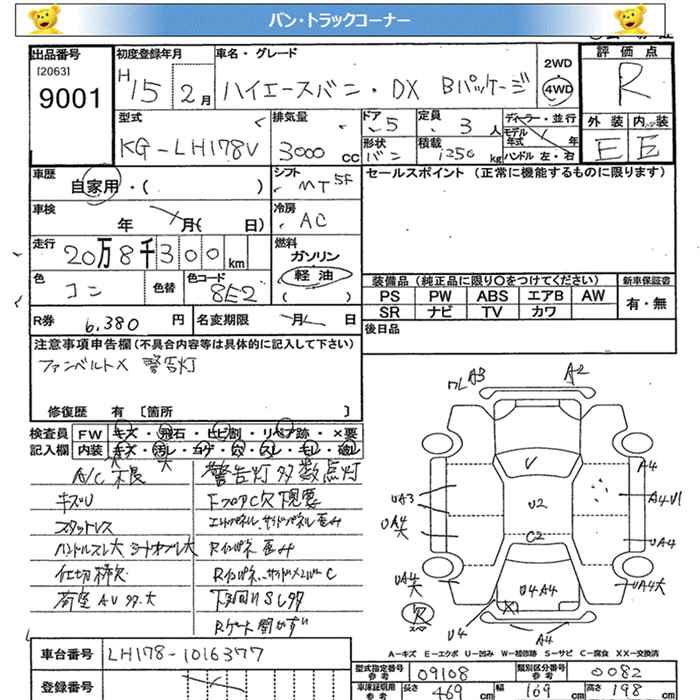 バン・トラックコーナー
出品番号 初度登録年月 車名・グレード 2WD 評価点
[2063] H15 2月 ハイエースバン・DX Bパッケージ 4WD R
9001
型式 排気量 ドア 定員 ディーラー・並行 外装 内装
KG-LH178V 3000cc 5 3人 モデル年式 年 E E
形状 積載 ハンドル 左・右
バン 1250kg
車歴 シフト セールスポイント(正常に機能するものに限ります)
自家用・( ) MT5F
車検 冷房
年 月( 日) AC
走行 燃料
20万8千300km ガソリン
色 色替 色コード 軽油 装備品(純正品に限り○をつけてください) 新車保証書
コン 8E2 ( ) PS PW ABS エアB AW 有・無
SR ナビ TV カワ
R券 6,380円 名変期限 月 日 後日品
注意事項申告欄(不具合内容等は具体的に記入して下さい)
ファンベルト× 警告灯
修復歴 有 [箇所 ]
検査員 FW キズ・飛石・ヒビ割・リペア跡・×要
記入欄 内装 キズ・汚レ・コゲ・穴・スレ・モレ・破レ
A/C不良 警告灯多数点灯
キズU FフロアC穴下見要
スタットレス
ハンドルスレ大
仕切棒欠
下回りSL多
Rゲート開かず
ワレ A3 A2
V
U2
C2
UA3
UA4大
UA4大
A4
A4U1
UA4
UA4大
U4A4
U4
A4
欠
スペア
A=キズ E=エクボ U=凹み W=補修跡 S=サビ C=腐食 XX=交換済
車台番号 LH178-1016377
型式指定番号参考 09108 類別区分番号参考 0082
登録番号
車庫証明用参考 長さ 469cm 幅 169cm 高さ 198cm